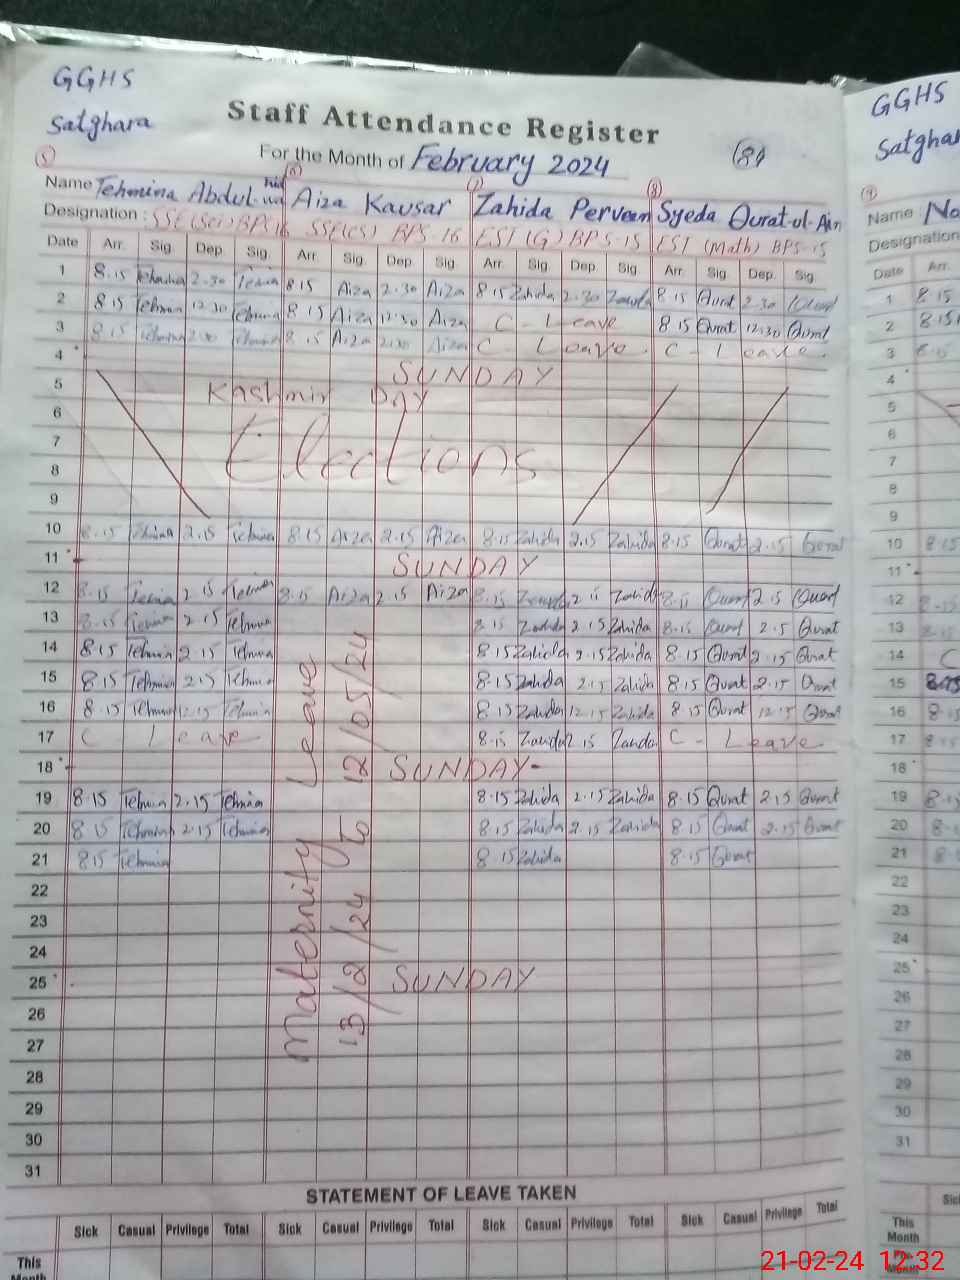 GGHS
Satghara
Staff Attendance Register
For the Month of February 2024
GGHS
Satghar
5 6 7 8 9
Name Tehmina Abdul- Aiza Kausar Zahida Perveen Syeda Qurat-ul-Ain Name No
Designation : SSE(Sci) BPS-16 SSE(CS) BPS-16 EST (G) BPS-15 EST (Math) BPS-15 Designation
Date Arr. Sig. Dep. Sig. Arr. Sig. Dep. Sig. Arr. Sig. Dep. Sig. Arr. Sig. Dep. Sig. Date Arr.
1 8.15 Tehmina 2.30 8.15 Aiza 2.30 Aiza 8.15 Zahida 2.30 8.15 Qurat 2.30 Qurat 1 8.15
2 8.15 Tehmina 12.30 Tehmina 8.15 Aiza 12.30 Aiza C - Leave 8.15 Qurat 12.30 Qurat 2 8.15
3 8.15 Tehmina Tehmina 8.15 Aiza Aiza C Leave. C - Leave. 3 8.15
4 SUNDAY 4
5 Kashmir DAY 5
6 6
7 Elections 7
8 8
9 9
10 8.15 2.15 Tehmina 8.15 Aiza 2.15 Aiza 8.15 Zahida 2.15 Zahida 8.15 Qurat 2.15 Qurat 10 8.15
11 SUNDAY 11
12 8.15 2.15 Tehmina 8.15 Aiza 2.15 Aiza 8.15 2.15 Zahida 8.15 Qurat 2.15 Qurat 12 8.15
13 8.15 2.15 Tehmina 8.15 Zahida 2.15 Zahida 8.15 Qurat 2.15 Qurat 13 8.15
14 8.15 Tehmina 2.15 Tehmina 8.15 Zahida 2.15 Zahida 8.15 Qurat 2.15 Qurat 14 C
15 8.15 Tehmina 2.15 Tehmina 8.15 Zahida 2.15 Zahida 8.15 Qurat 2.15 Qurat 15 8.15
16 8.15 Tehmina 12.15 Tehmina 8.15 Zahida 12.15 Zahida 8.15 Qurat 12.15 Qurat 16 8.15
17 C Leave 8.15 2.15 C - Leave 17 8.15
18 SUNDAY 18
19 8.15 Tehmina 2.15 Tehmina 8.15 Zahida 2.15 Zahida 8.15 Qurat 2.15 Qurat 19 8.15
20 8.15 Tehmina 2.15 Tehmina 8.15 Zahida 2.15 Zahida 8.15 Qurat 2.15 Qurat 20 8.
21 8.15 Tehmina 8.15 Zahida 8.15 Qurat 21 8.
Maternity Leave
13/2/24 To 12/05/24
22 22
23 23
24 24
25 SUNDAY 25
26 26
27 27
28 28
29 29
30 30
31 31
STATEMENT OF LEAVE TAKEN
Sick Casual Privilege Total Sick Casual Privilege Total Sick Casual Privilege Total Sick Casual Privilege Total Sic
This Month
This Month
21-02-24 12:32